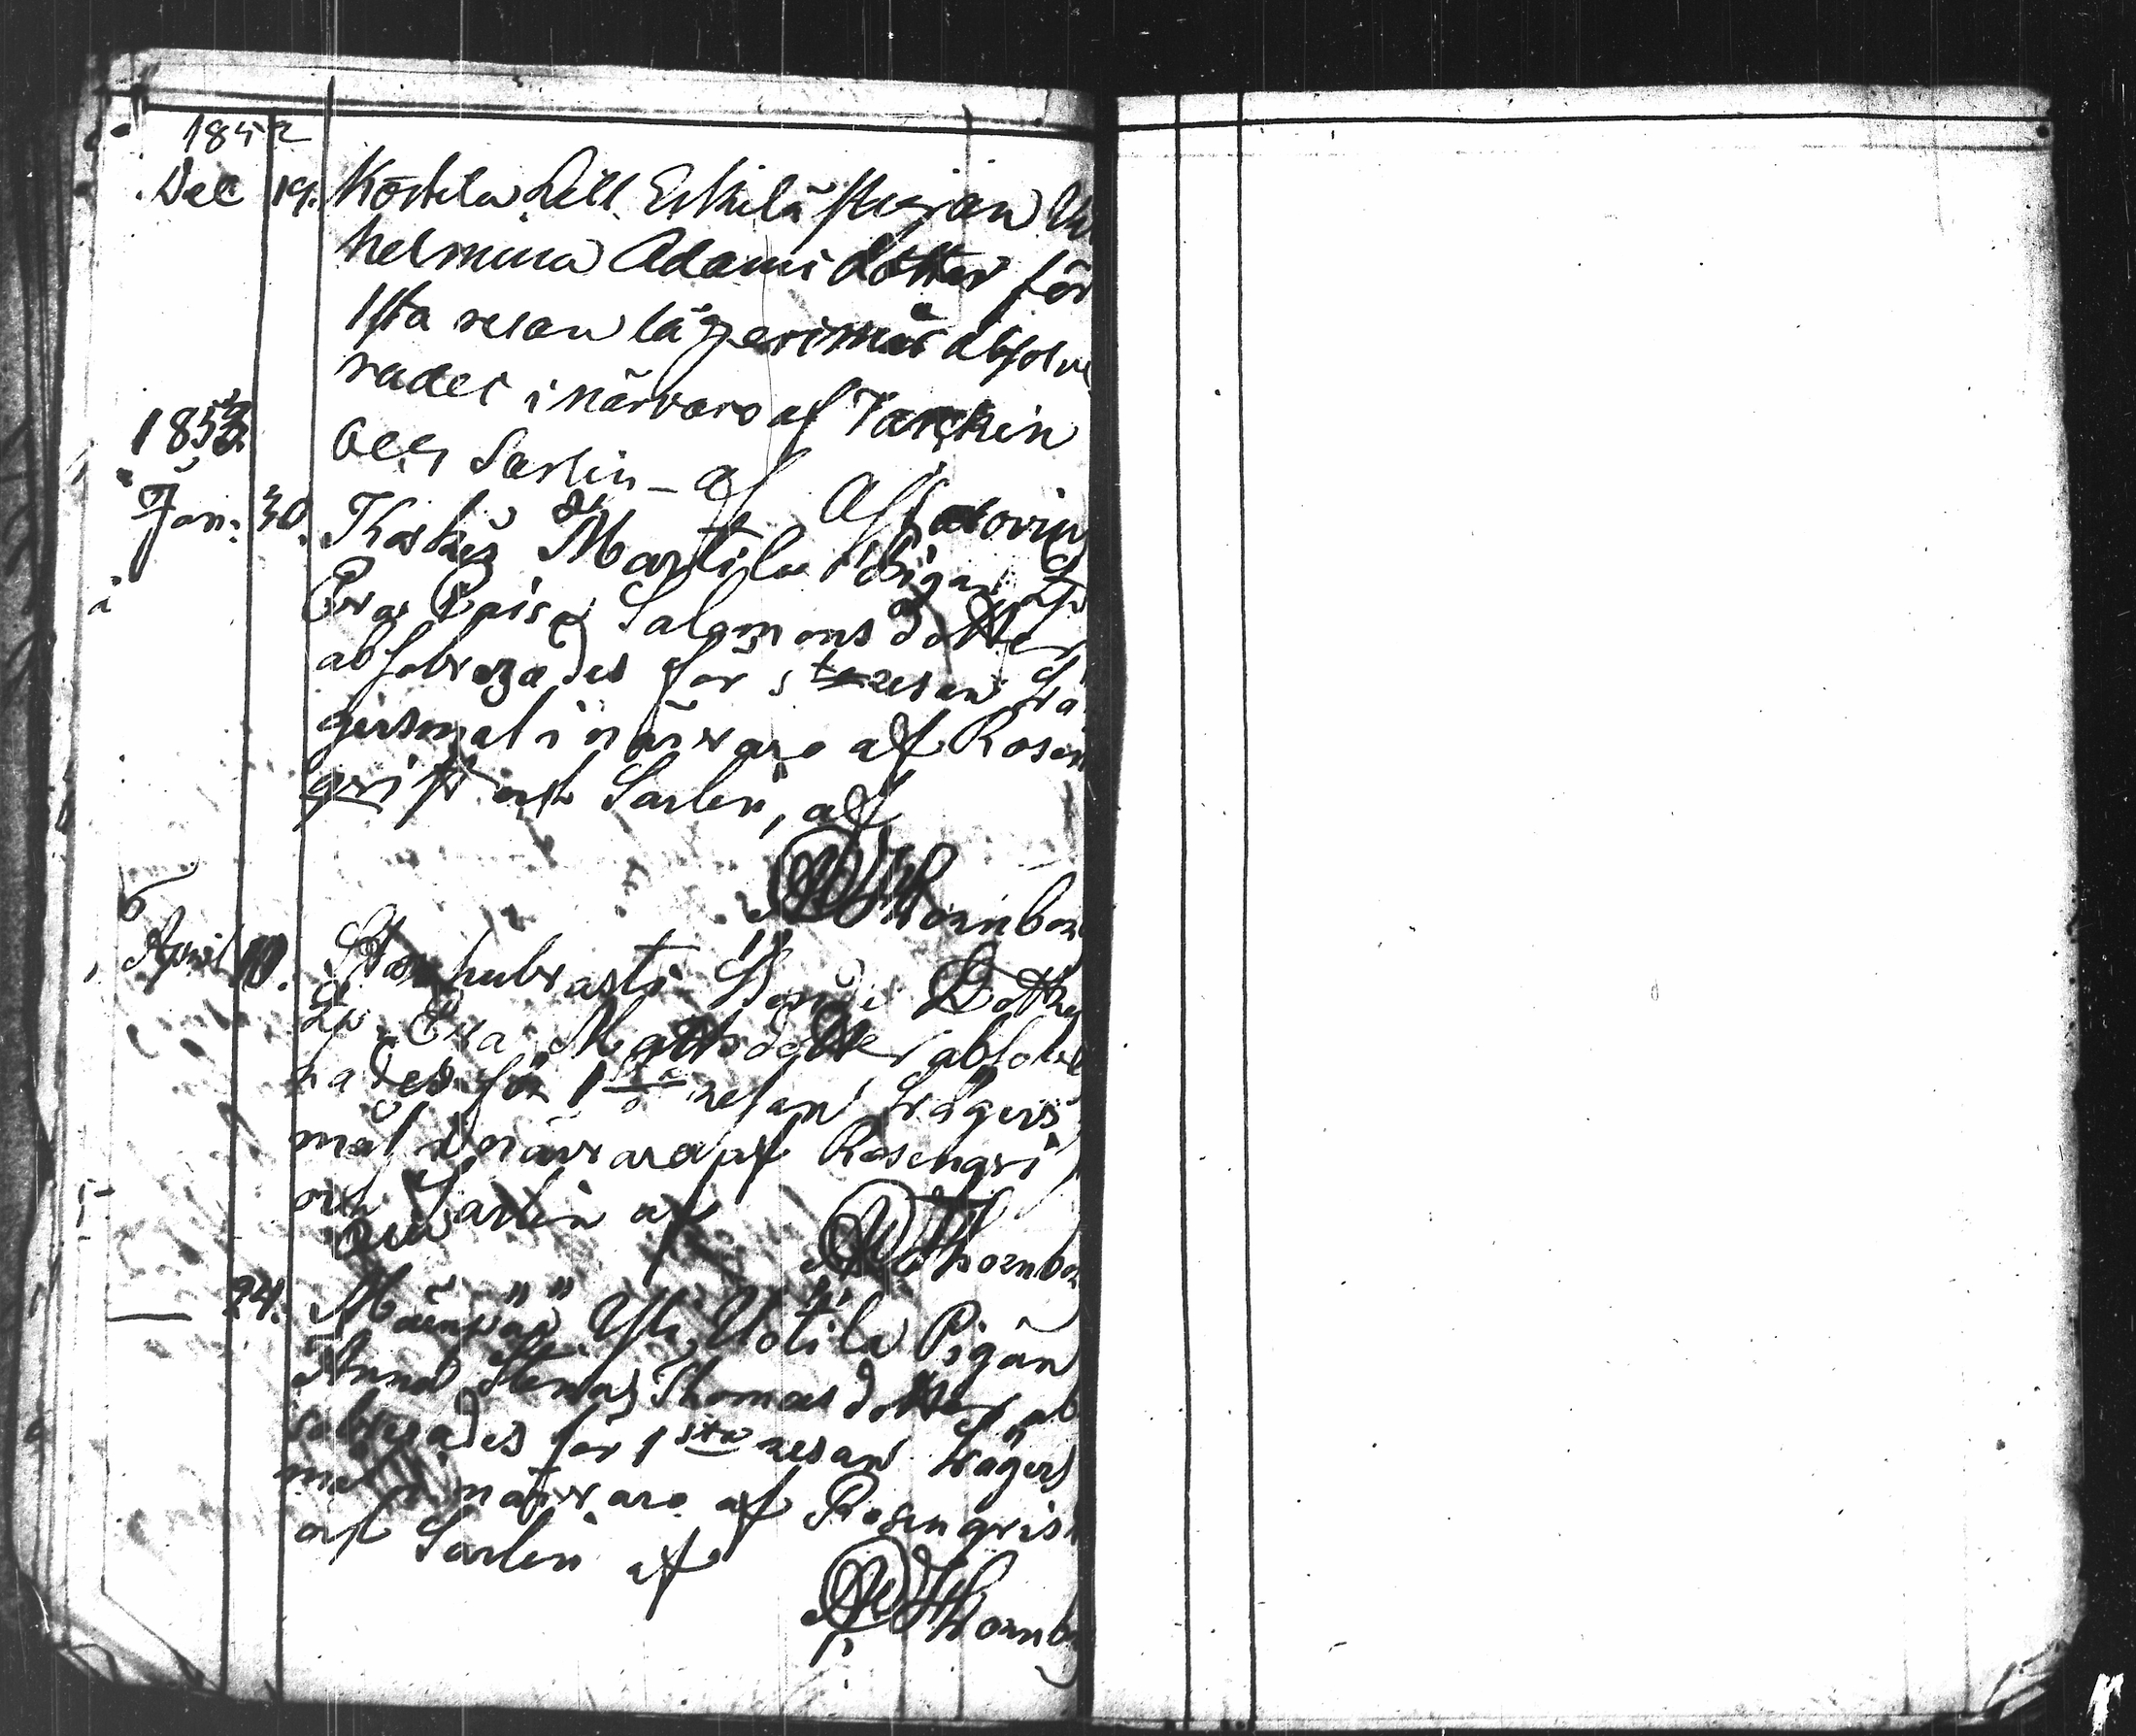 1852
Dec 19. Köstila Lill Eskilä Pigan Vil
helmina Adamsdotter för
1sta resan lägersmål absolve
rades i närvaro af Tarckin
och Sarlin – af
1853
Jan. 30. Martila Pigan
Eva Lovisa Salomonsdotter
absolverades för 1sta resan Lä
gersmål i närvaro af Rosen
qvist och Sarlin, af
Thornbor
April 10. Bond. Dotter
Eva Mattsdotter absolve
rades för 1sta resan Lägers
mål i närvaro af Rosenqvi
och Sarlin af
Thornbor
24. Yli Uotila Pigan
Anna Stina Thomasdotter ab
solverades för 1sta resan Lägers
mål i närvaro af Rosenqvis
och Sarlin af
Thornbo